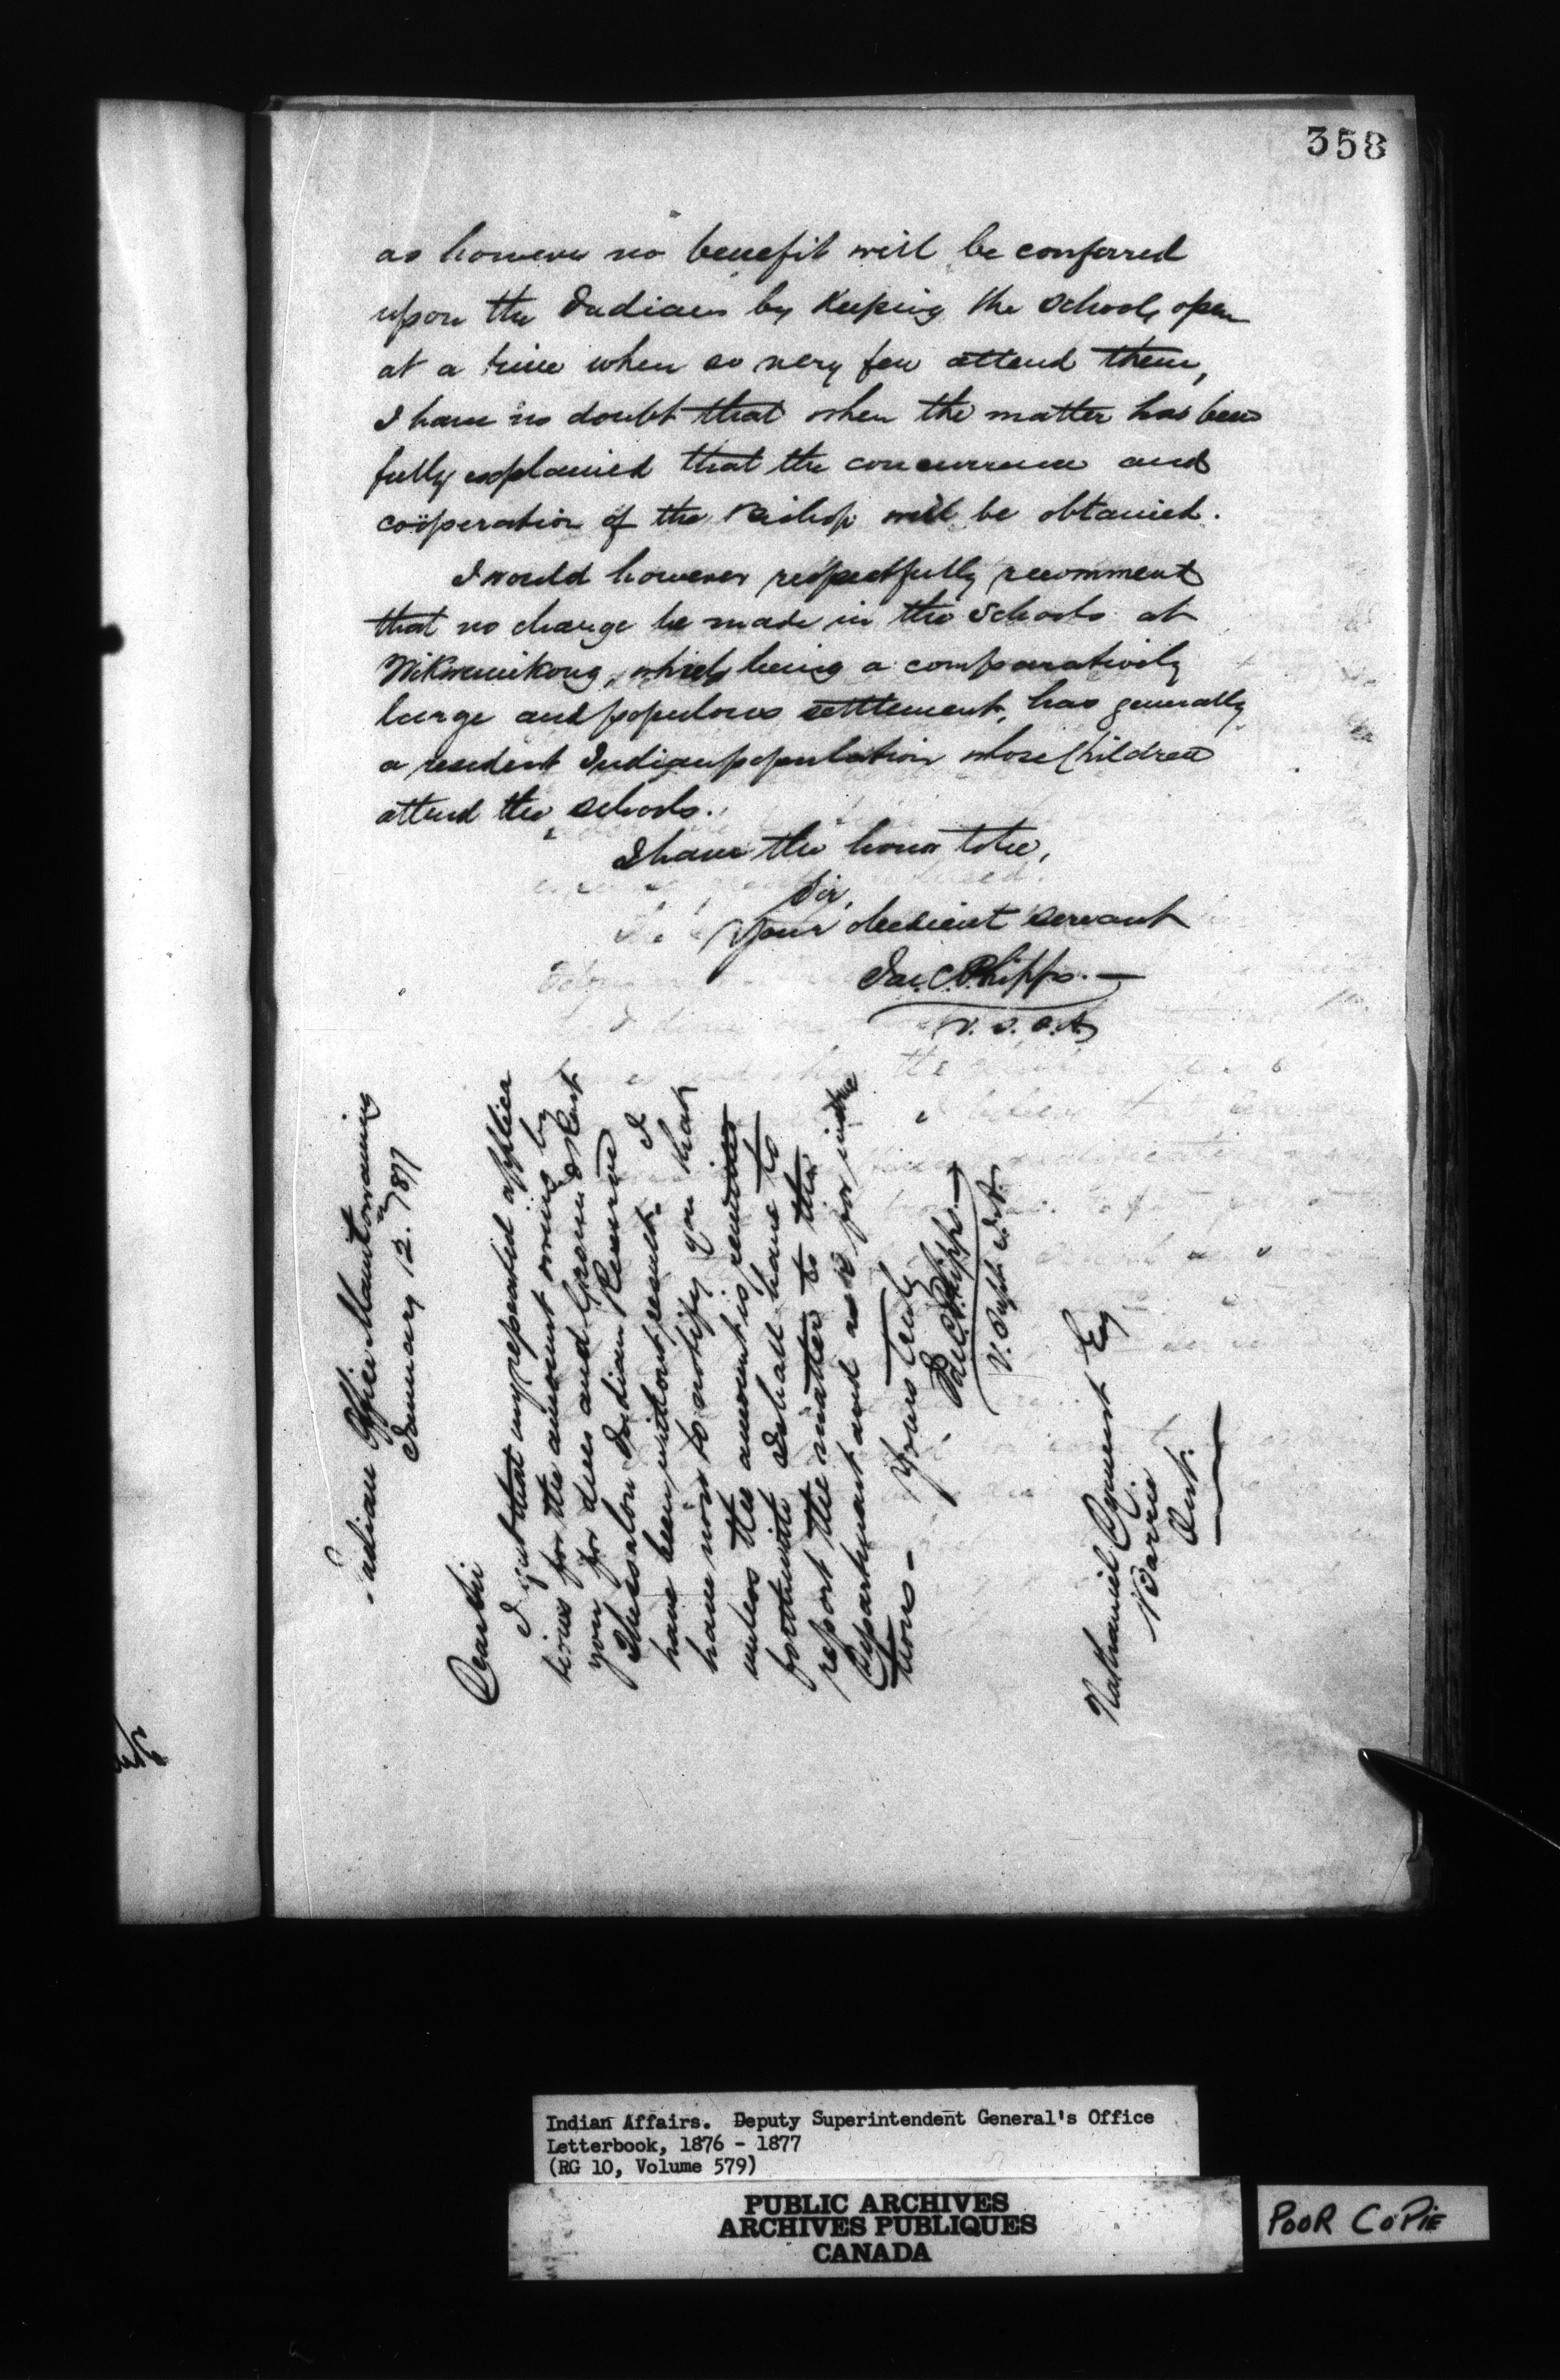 358
as however no benefit will be conferred
upon the Indians by Keeping the Schools open
at a time when so very few attend them,
I have no doubt that when the matter has been
fully explained that the concurrence and
coöperation of the Bishop will be obtained.
I would however respectfully recommend
that no change be made in the Schools at
Wikwemikong, which being a comparatively
large and populous settlement, has generally
a resident Indian population whose Children
attend the schools.
I have the honor to be,
Sir,
Your obedient servant
Jas. C. Phipps. —
V. S. I. A.
Indian Office Manitowaning
January 12. 1877
Dear Sir
I regret that my repeated applica
tions for the amount owing by
you for dues and Ground Rent
Thessalon Indian Reserve
have been without result. I
have now to notify you that
unless the amount is remitted
forthwith I shall have to
report the matter to the
Department and ask for instruc
tions —
Yours truly
Jas. C. Phipps —
V. Supt. I. A.
Nathaniel Dyment Esq
Barrie
Ont.
Indian Affairs. Deputy Superintendent General's Office
Letterbook, 1876 - 1877
(RG 10, Volume 579)
PUBLIC ARCHIVES
ARCHIVES PUBLIQUES
CANADA
POOR COPIE